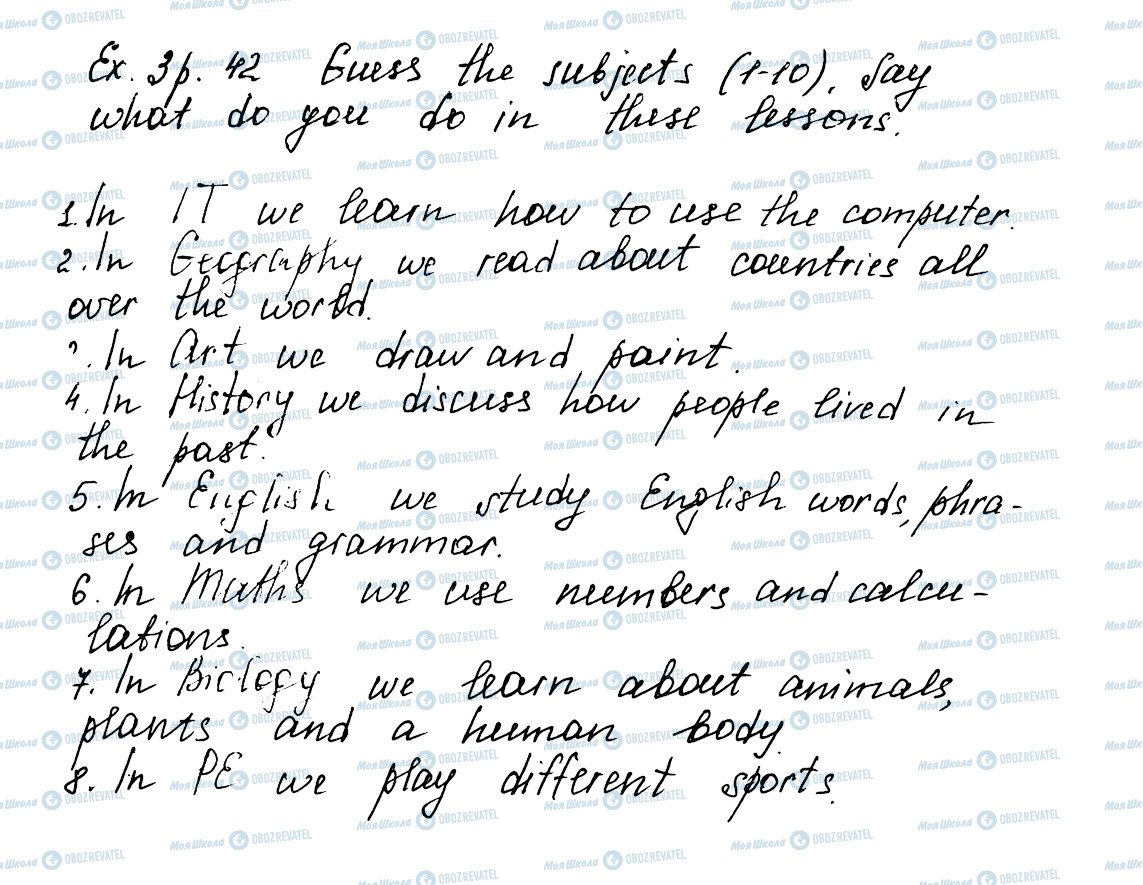 Ex. 3 p. 42 Guess the subjects (1-10). Say
what do you do in these lessons.
1. In IT we learn how to use the computer.
2. In Geography we read about countries all
over the world.
3. In Art we draw and paint.
4. In History we discuss how people lived in
the past.
5. In English we study English words, phra-
ses and grammar.
6. In Maths we use numbers and calcu-
lations.
7. In Biology we learn about animals,
plants and a human body.
8. In PE we play different sports.